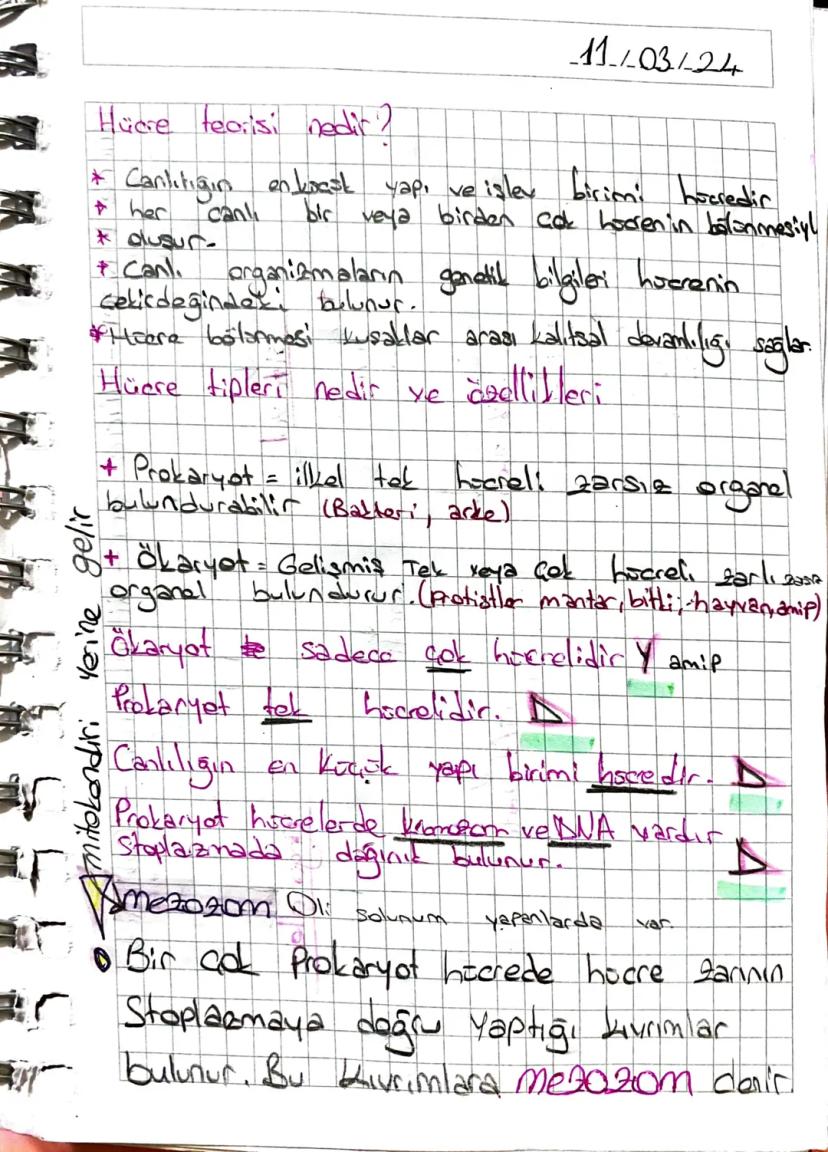 11/03/24
Hücre teorisi nedir?
* Canlılığın en küçük yapı ve işlev birimi hücredir
* her canlı bir veya birden çok hücrenin bölünmesiyl
* oluşur.
* Canlı organizmaların genetik bilgileri hücrenin
çekirdeğindeki bulunur.
* Hücre bölünmesi kuşaklar arası kalıtsal devamlılığı sağlar.
Hücre tipleri nedir ve özellikleri
+ Prokaryot = ilkel tek hücreli zarsız organel
bulundurabilir (Bakteri, arke)
+ Ökaryot = Gelişmiş Tek veya çok hücreli zarlı zarsız
organel bulundurur. (Protistler mantar, bitki, hayvan, amip)
Ökaryot sadece çok hücrelidir Y amip
Prokaryot tek hücrelidir. D
Canlılığın en küçük yapı birimi hücredir. D
Prokaryot hücrelerde kromozom ve DNA vardır
Stoplazmada dağınık bulunur. D
mezozom O₂li solunum yapanlarda var.
Bir çok Prokaryot hücrede hücre zarının
Stoplazmaya doğru yaptığı kıvrımlar
bulunur. Bu kıvrımlara mezozom denir
mitokondiri yerine gelir